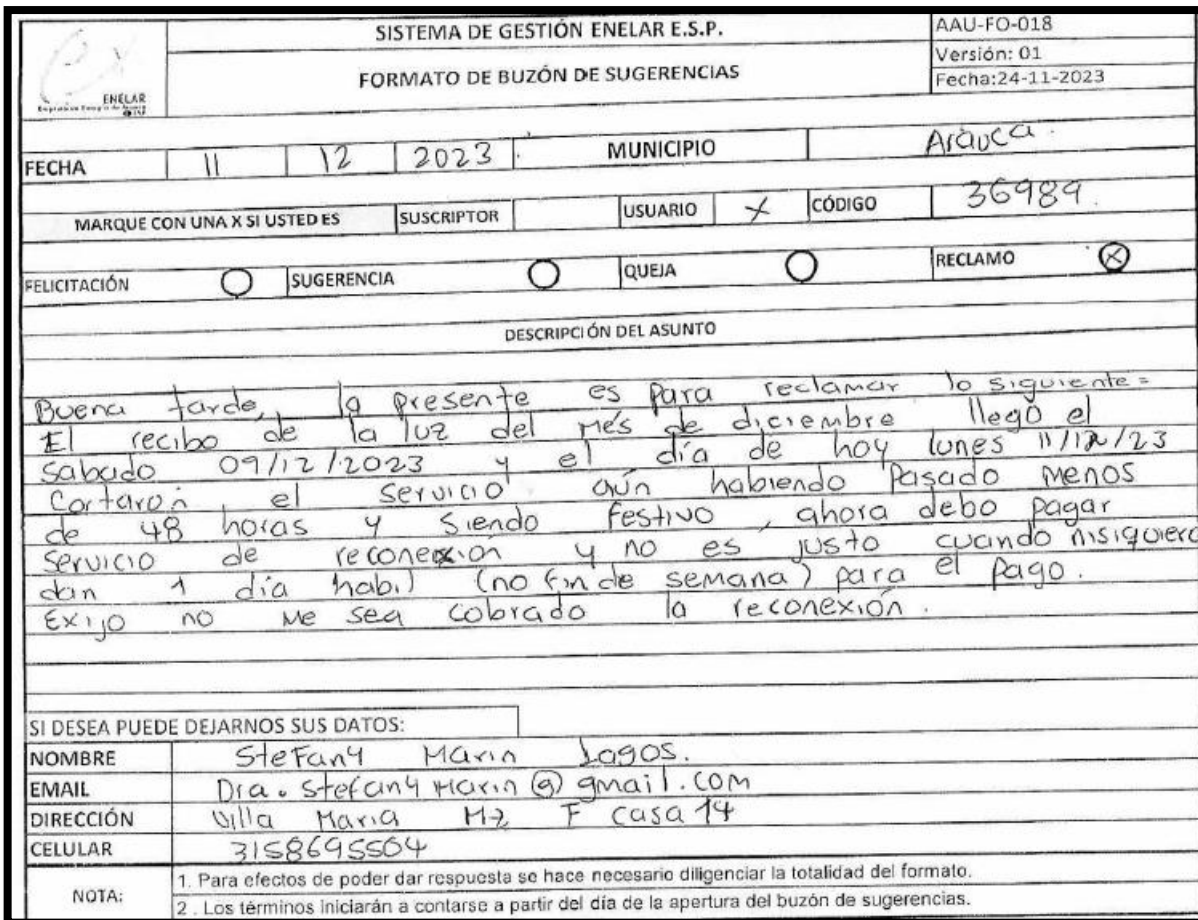 SISTEMA DE GESTIÓN ENELAR E.S.P.
AAU-FO-018
Versión: 01
FORMATO DE BUZÓN DE SUGERENCIAS
Fecha:24-11-2023
ENELAR
FECHA 11 12 2023 MUNICIPIO Arauca.
MARQUE CON UNA X SI USTED ES SUSCRIPTOR USUARIO X CÓDIGO 36989.
FELICITACIÓN SUGERENCIA QUEJA RECLAMO X
DESCRIPCIÓN DEL ASUNTO
Buena tarde, la presente es para reclamar lo siguiente=
El recibo de la luz del Més de diciembre llegó el
Sabado 09/12/2023 y el día de hoy lunes 11/12/23
Cortarón el servicio aún habiendo Pasado menos
de 48 horas y siendo festivo, ahora debo pagar
servicio de reconexión y no es justo cuando nisiquiera
dan 1 día habil (no fin de semana) para el pago.
Exijo no me sea cobrado la reconexión.
SI DESEA PUEDE DEJARNOS SUS DATOS:
NOMBRE Stefany Marin Lagos.
EMAIL Dra.StefanyMarin@gmail.com
DIRECCIÓN Villa Maria Mz F casa 14
CELULAR 3158695504
NOTA:
1. Para efectos de poder dar respuesta se hace necesario diligenciar la totalidad del formato.
2 . Los términos iniciarán a contarse a partir del día de la apertura del buzón de sugerencias.